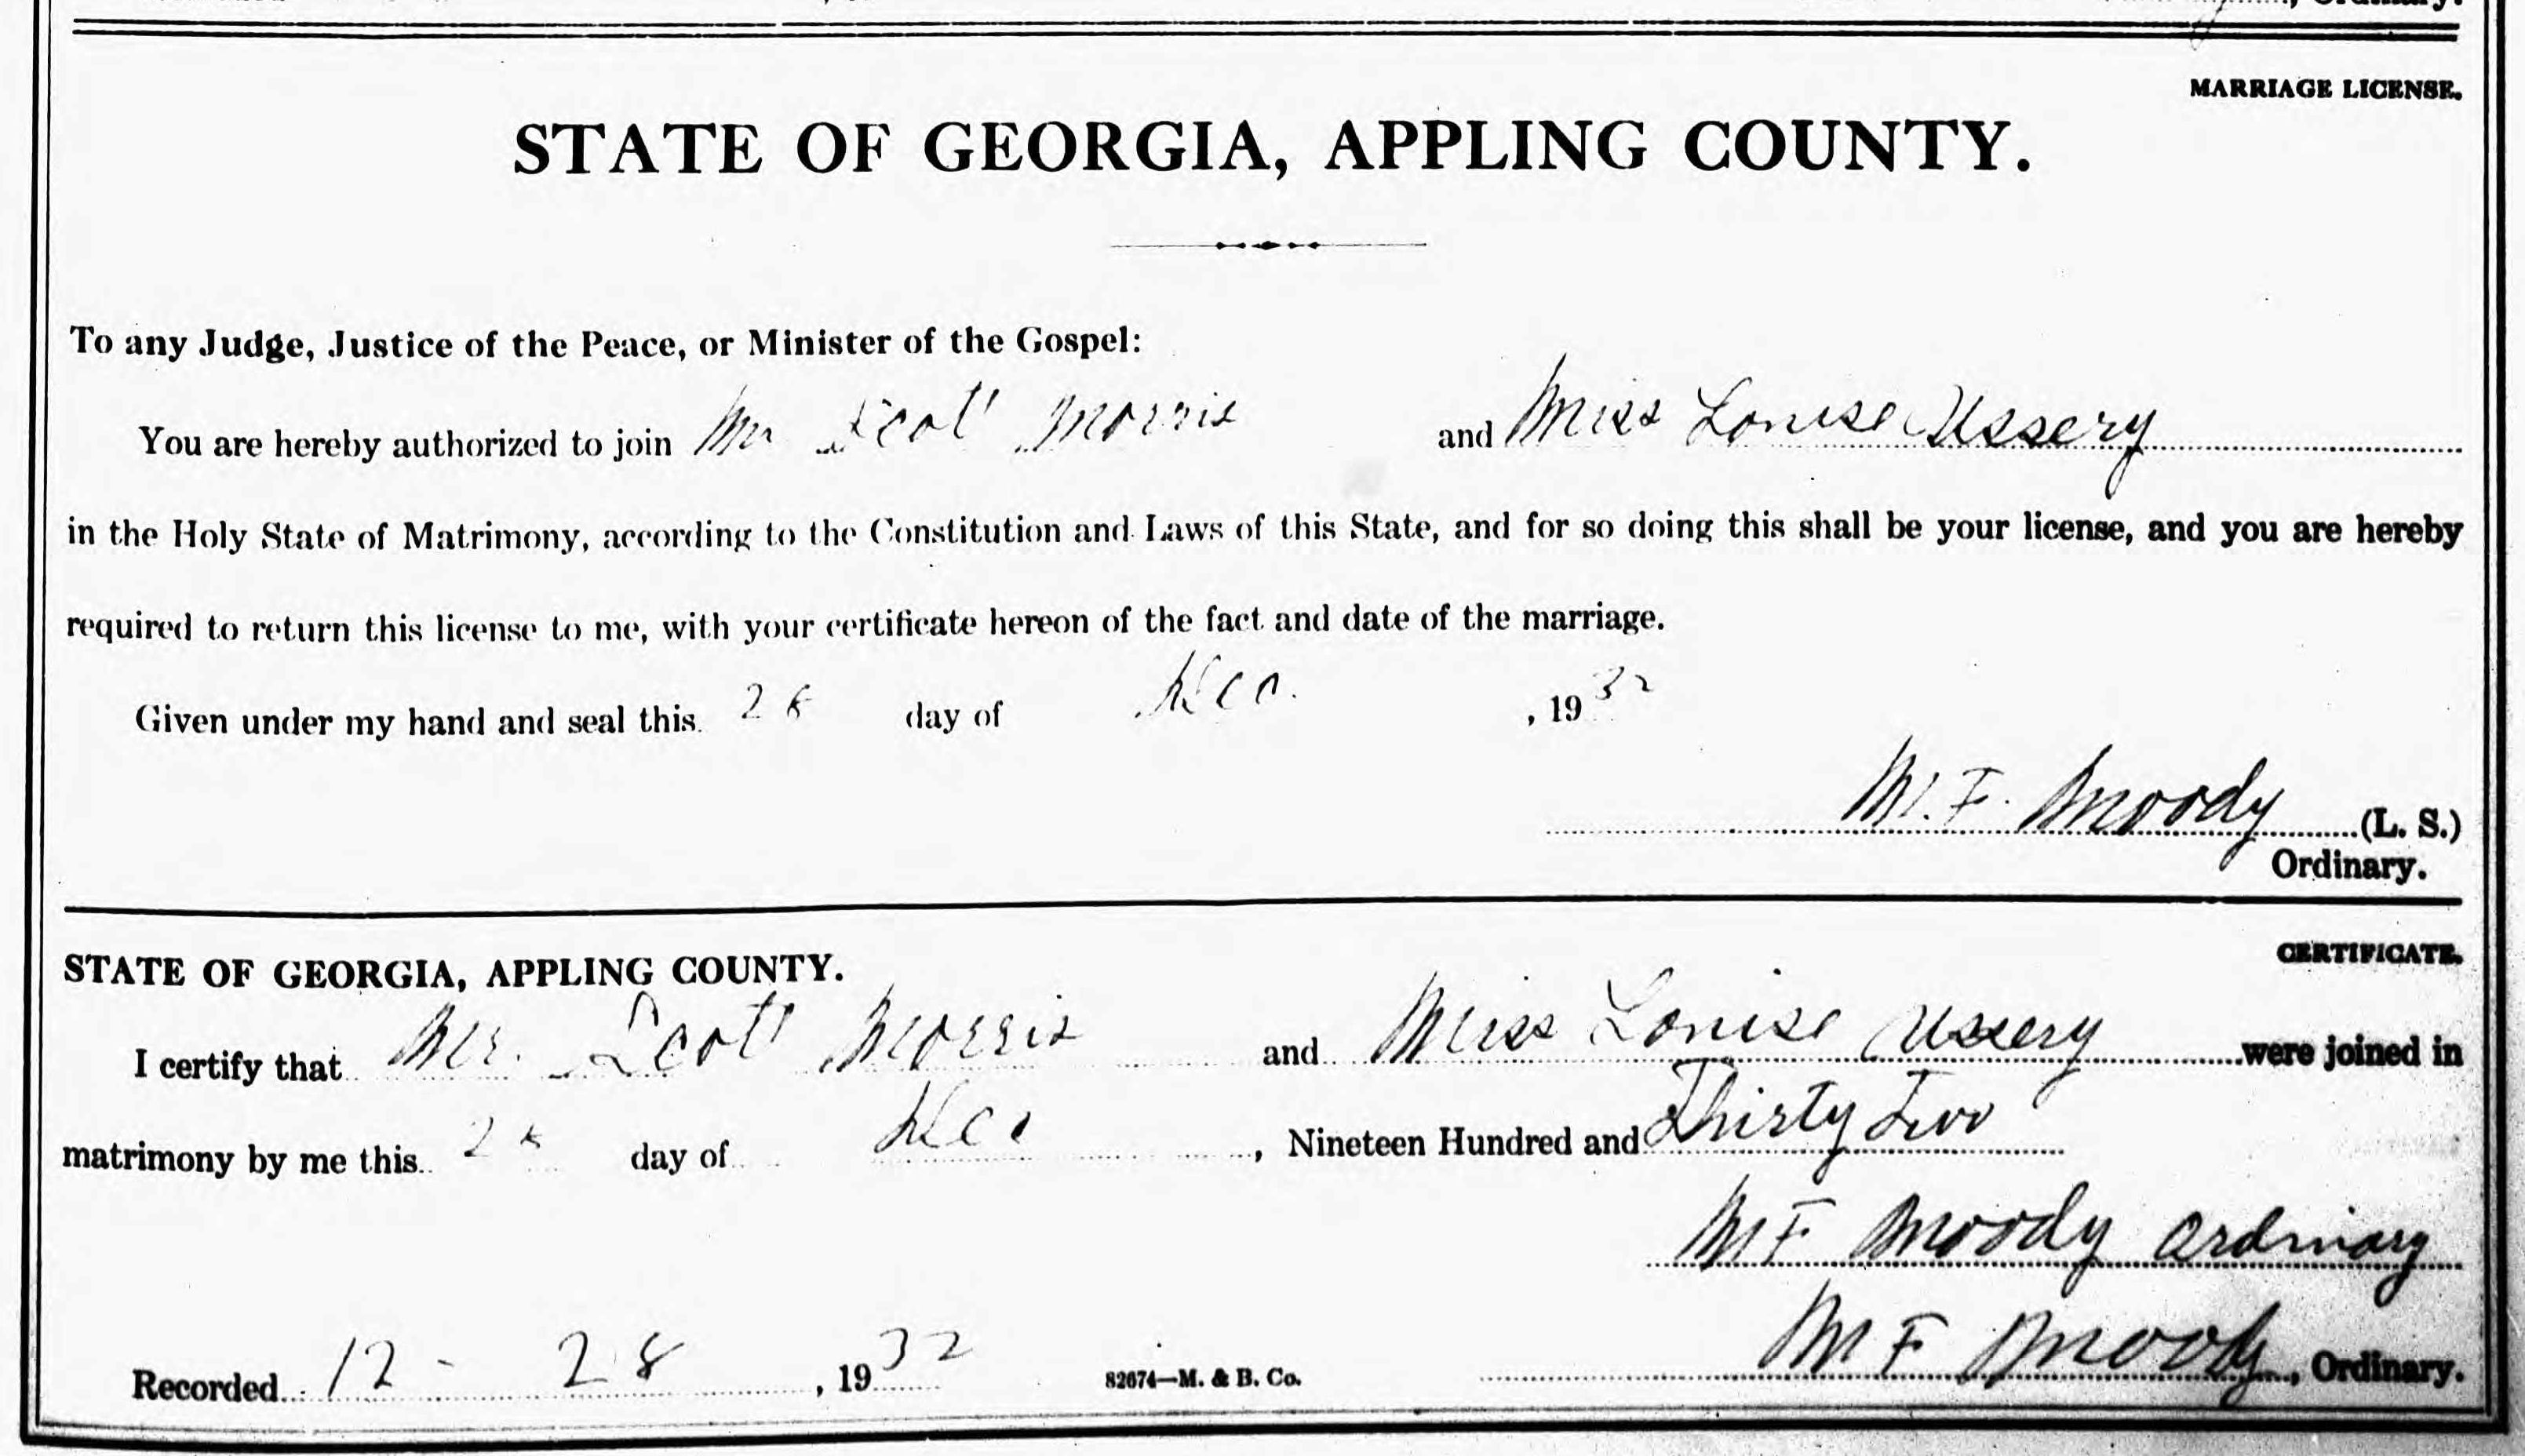 Ordinary.
MARRIAGE LICENSE.
STATE OF GEORGIA, APPLING COUNTY.
To any Judge, Justice of the Peace, or Minister of the Gospel:
You are hereby authorized to join Mr Scott Morris and Miss Louise Ussery
in the Holy State of Matrimony, according to the Constitution and Laws of this State, and for so doing this shall be your license, and you are hereby
required to return this license to me, with your certificate hereon of the fact and date of the marriage.
Given under my hand and seal this 28 day of Dec. , 1932
M. F. Moody (L. S.)
Ordinary.
CERTIFICATE.
STATE OF GEORGIA, APPLING COUNTY.
I certify that Mr. Scott Morris and Miss Louise Ussery were joined in
matrimony by me this 28 day of Dec , Nineteen Hundred and Thirty Two
M F Moody Ordinary
Recorded 12 - 28 , 1932 82674—M. & B. Co. M F Moody, Ordinary.